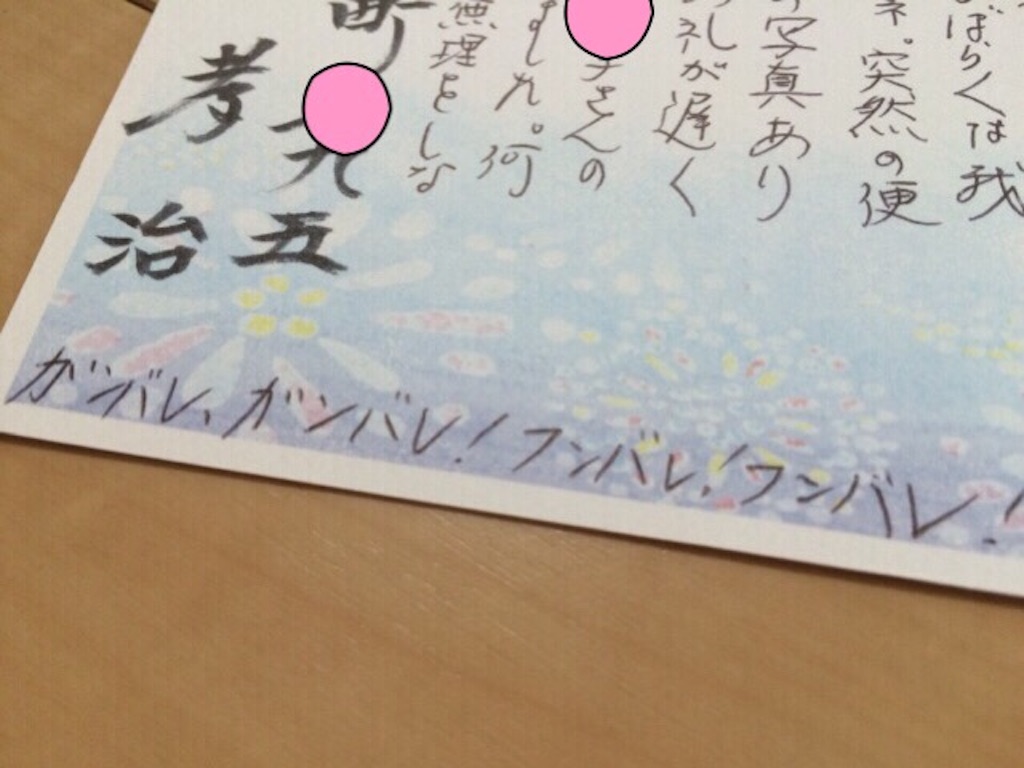 ばらくは我
ネ。突然の便
写真あり
礼が遅く
子さんの
ました。何
無理をしな
町
九
五
孝
治
ガンバレ、ガンバレ！フンバレ！フンバレ！